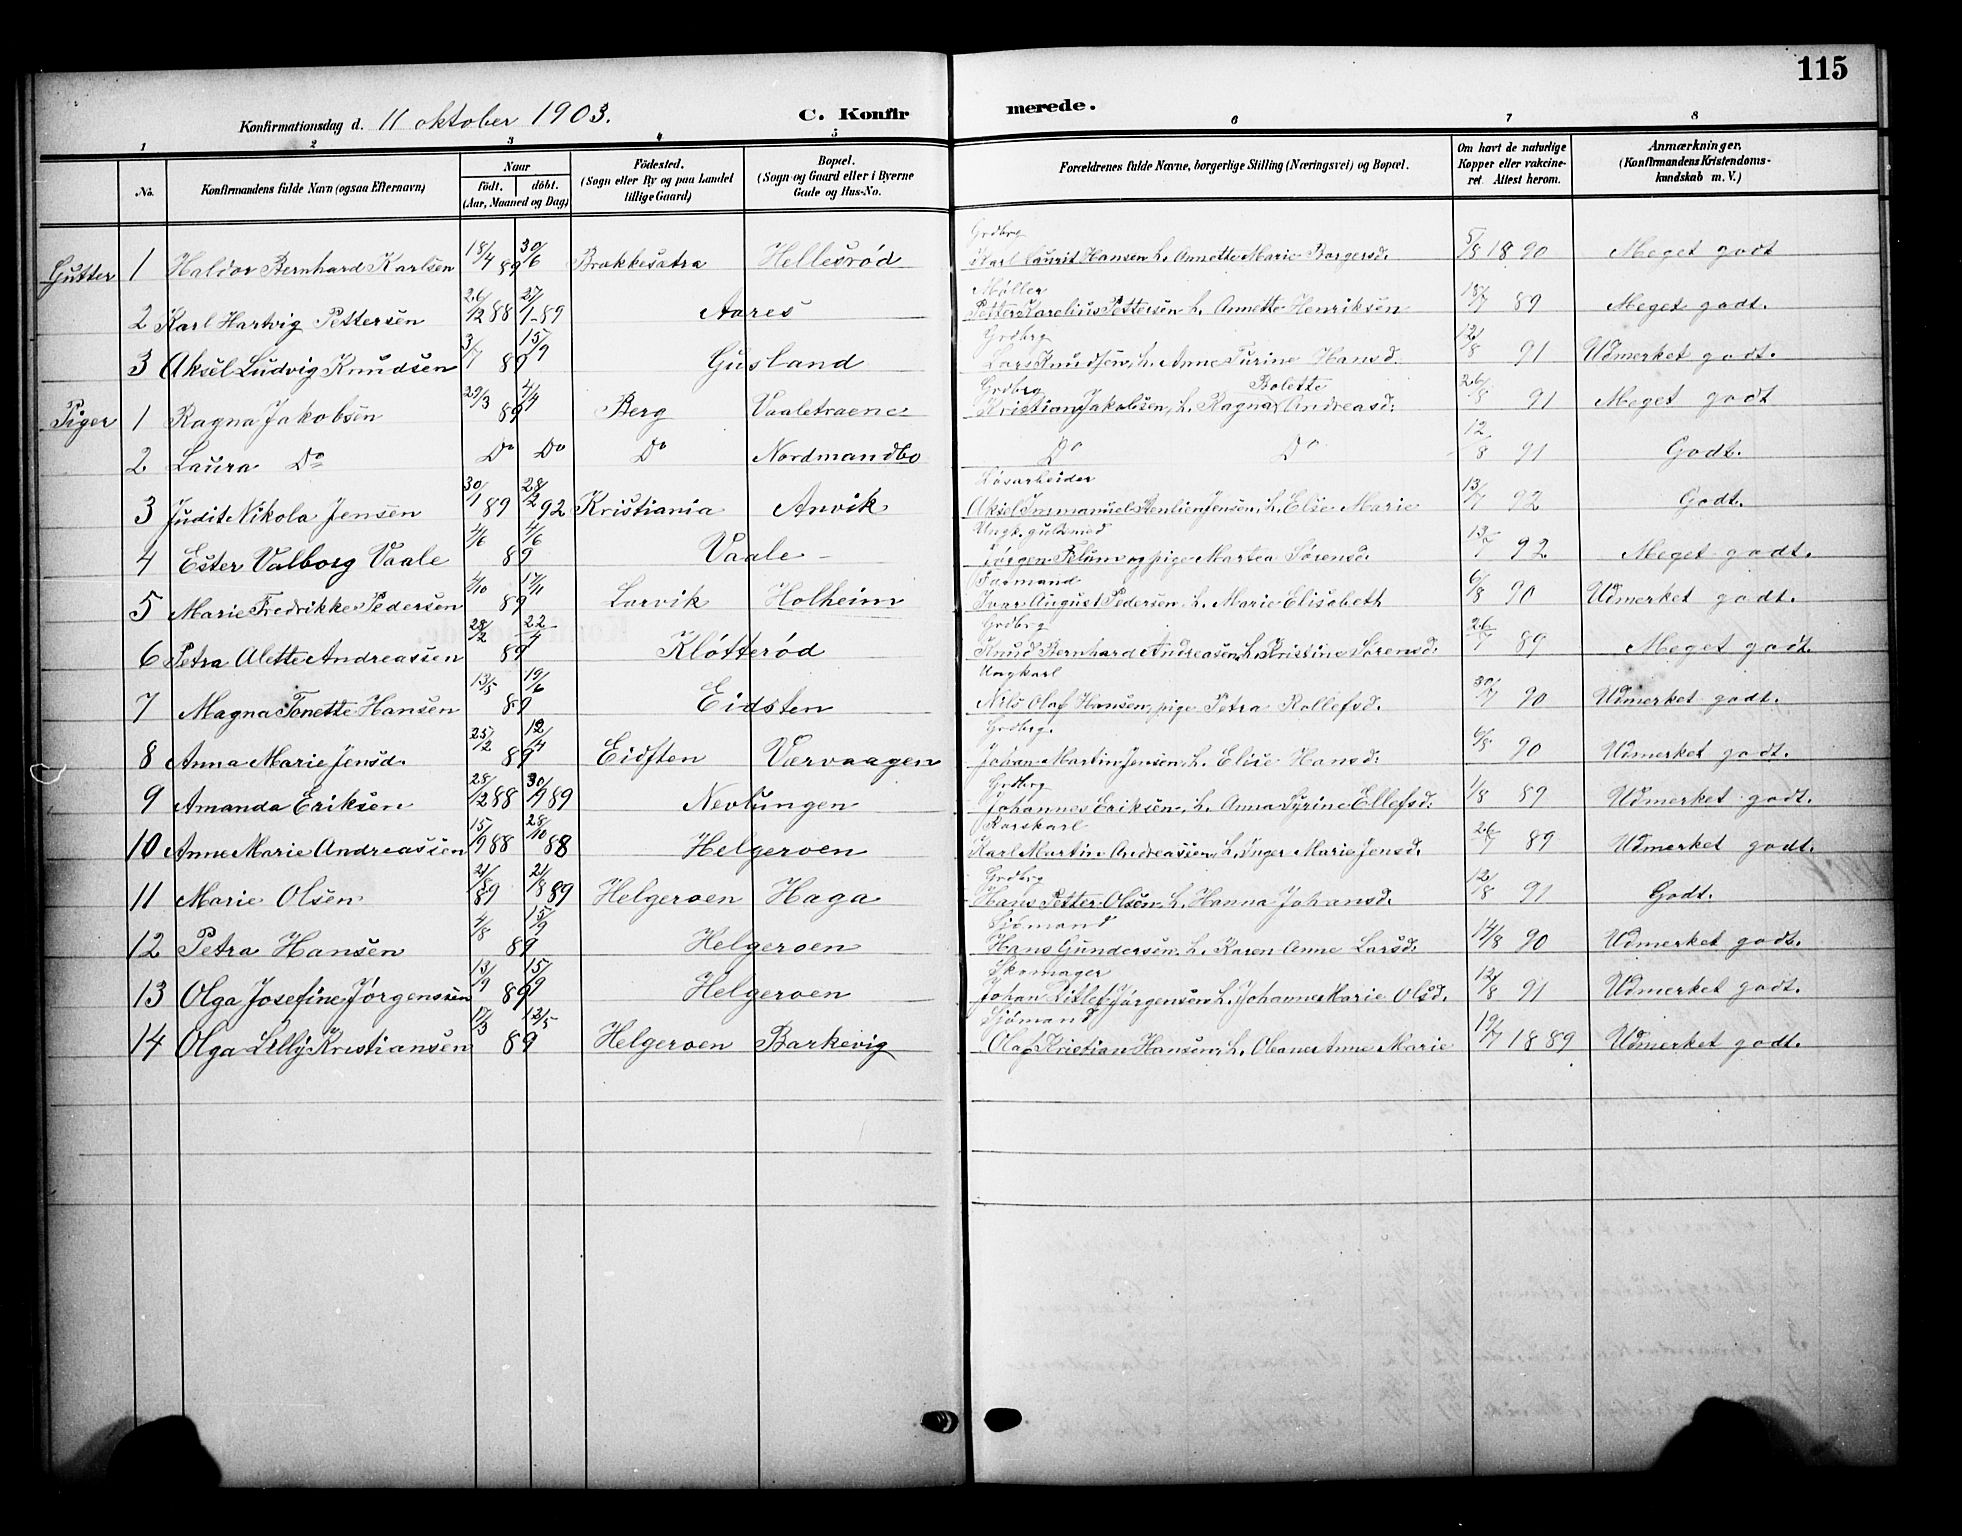 115
Konfirmationsdag d. 11 oktober 1903. C. Konfirmerede.
1 2 3 4 5 6 7 8
No. Konfirmandens fulde Navn (ogsaa Efternavn) Naar födt. döbt. (Aar, Maaned og Dag) Födested. (Sogn eller By og paa Landet tillige Gaard) Bopæl. (Sogn og Gaard eller i Byerne Gade og Hus-No. Forældrenes fulde Navne, borgerlige Stilling (Næringsvei) og Bopæl. Om havt de naturlige Kopper eller vakcineret. Attest herom. Anmærkninger. (Konfirmandens Kristendomskundskab m. V.)
Grdbrg
Gutter 1 Haldor Bernhard Karlsen 18/4 89 30/6 Brokkesatra Hellesröd Karl Laurit Hansen, h. Annette Marie Borgersd. 5/8 1890 Meget godt
Möller
2 Karl Hartvig Pettersen 26/12 88 27/1 89 Aares Petter Karelius Pettersen, h. Annette Henriksen 18/7 89 Meget godt.
Grdbrg
3 Aksel Ludvig Knudsen 3/7 89 15/9 Gusland Lars Knudsen, h. Anne Turine Hansd. 12/8 91 Udmerket godt.
Grdbrg
Piger 1 Ragna Jakobsen 29/3 89 4/4 Berg Vaaletraene Kristian Jakobsen, h. Ragna Bolette Andreasd. 26/8 91 Meget godt
2 Laura Do Do Do Do Nordmandbo Do Do 12/8 91 Godt.
Løsarbeider
3 Judit Nikola Jensen 30/1 89 28/2 92 Kristiania Anvik Aksel Immanuel Stenlien Jensen, h. Elise Marie 13/7 92 Godt.
Ungk. guldsmed
4 Ester Valborg Vaale 4/6 89 4/6 Vaale Jörgen Blum og pige Martea Sörensd. 13/7 92 Meget godt.
5 Marie Fredrikke Pedersen 4/10 89 17/11 Larvik Holheim Ivar August Pedersen, h. Marie Elisabeth 6/8 90 Udmerket godt.
Grdbrg
6 Petra Alette Andreassen 28/2 89 22/4 Klötteröd Knud Bernhard Andreasen, h. Kristine Sörensd. 26/7 89 Meget godt.
Ungkarl
7 Magna Tonette Hansen 13/5 89 19/6 Eidsten Nils Olaf Hansen, pige Petra Rollefsd. 30/7 90 Udmerket godt.
Grdbrg.
8 Anna Marie Jensd. 25/2 89 12/4 Eidsten Værvaagen Johan Martin Jensen, h. Elise Hansd. 6/8 90 Udmerket godt.
Grdbrg
9 Amanda Eriksen 28/12 88 30/1 89 Nevlungen Johannes Eriksen, h. Anna Syrine Ellefsd. 1/8 89 Udmerket godt.
10 Anne Marie Andreassen 15/9 88 28/10 88 Helgeroen Karl Martin Andreassen, h. Inger Marie Jensd. 26/7 89 Udmerket godt.
Grdbrg
11 Marie Olsen 21/8 89 21/8 89 Helgeroen Haga Hans Petter Olsen, h. Hanna Johansd. 12/8 91 Godt.
Sjömand
12 Petra Hansen 4/8 89 15/9 Helgeroen Hans Gundersen, h. Karen Anne Larsd. 14/8 90 Udmerket godt.
Skomager
13 Olga Josefine Jörgenssen 13/9 89 15/9 Helgeroen Johan Ditlef Jörgensen, h. Johanne Marie Olsd. 12/8 91 Udmerket godt.
Sjömand
14 Olga Lilly Kristiansen 17/3 89 12/5 Helgeroen Barkevig Olaf Kristian Hansen, h. Oleane Anne Marie 19/7 1889 Udmerket godt.